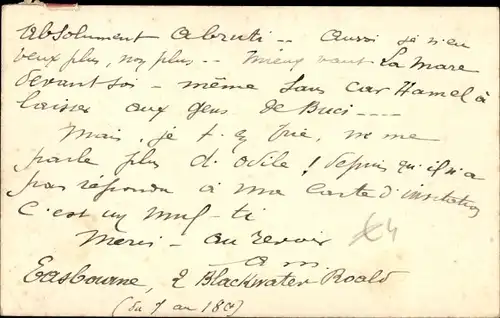 Absolument abruti -- Aussi je n'en
veux plus, non plus -- Mieux vaut La Mare
devant soi - même sans Car Hamel à
laisser aux gens de Buci ----
Mais, je t'en prie, ne me
parle plus d'Odile ! depuis qu'il n'a
pas répondu à ma carte d'invitation
C'est un muf-ti
Merci - au revoir
a m.
Easbourne, 2 Blackwater Road
(du 7 au 18)